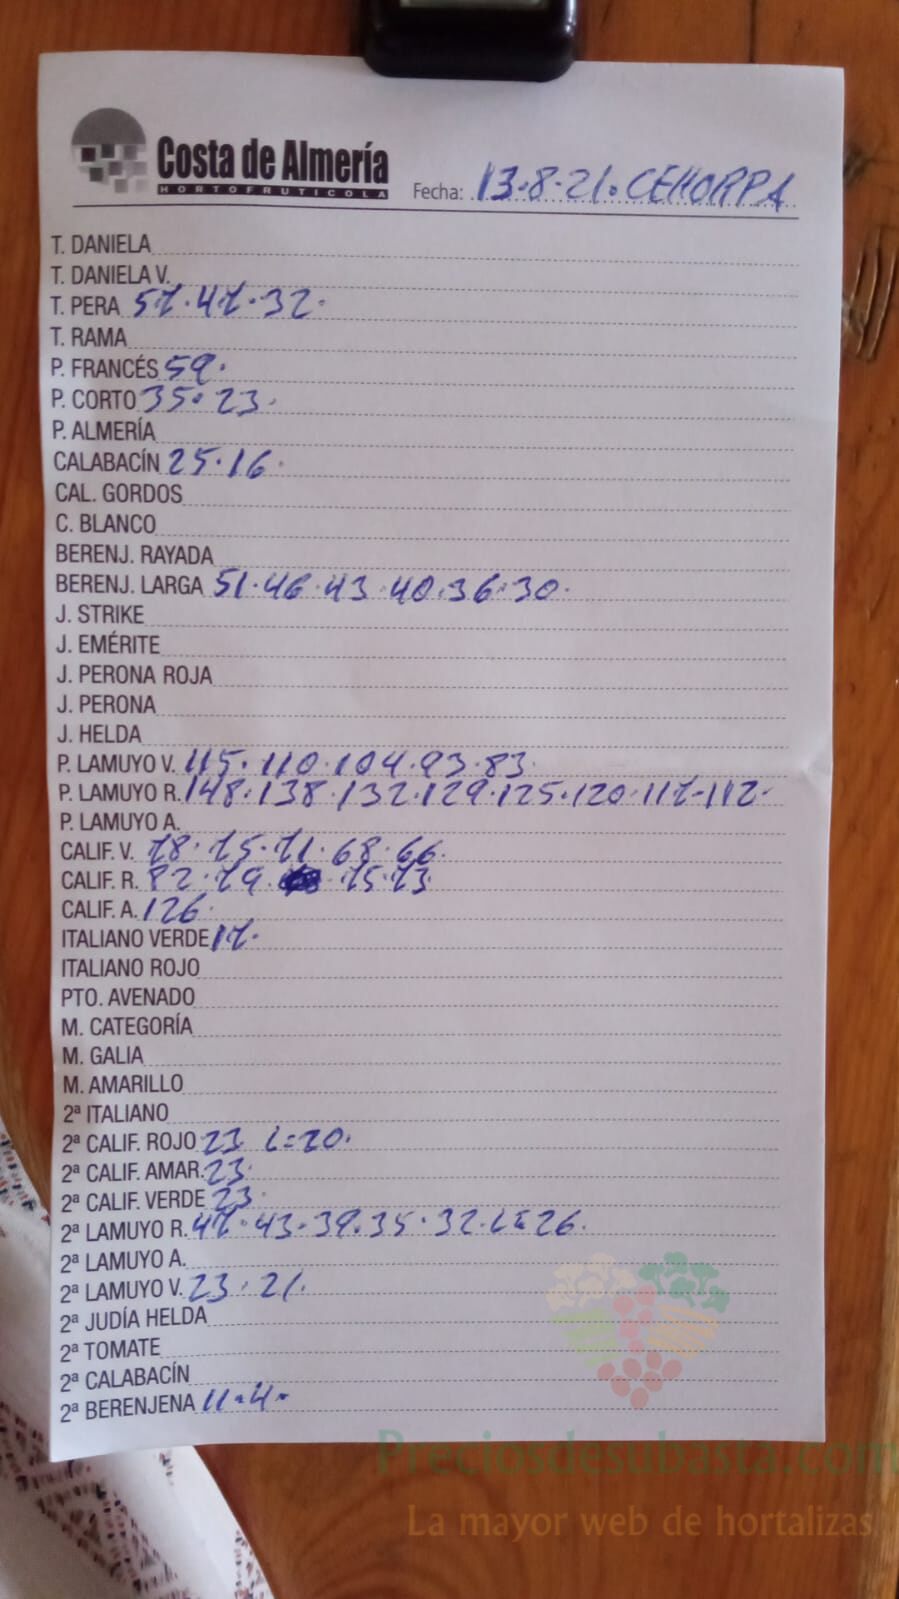 Costa de Almería
HORTOFRUTICOLA
Fecha: 13·8·21· CEHORPA
T. DANIELA
T. DANIELA V.
T. PERA 57·47·32·
T. RAMA
P. FRANCÉS 59·
P. CORTO 35·23·
P. ALMERÍA
CALABACÍN 25·16·
CAL. GORDOS
C. BLANCO
BERENJ. RAYADA
BERENJ. LARGA 51·46·43·40·36·30·
J. STRIKE
J. EMÉRITE
J. PERONA ROJA
J. PERONA
J. HELDA
P. LAMUYO V. 115·110·104·93·83·
P. LAMUYO R. 148·138·132·129·125·120·117·112·
P. LAMUYO A.
CALIF. V. 78·75·71·68·66·
CALIF. R. 82·79· 75·73
CALIF. A. 126·
ITALIANO VERDE 17·
ITALIANO ROJO
PTO. AVENADO
M. CATEGORÍA
M. GALIA
M. AMARILLO
2ª ITALIANO
2ª CALIF. ROJO 23 L=20·
2ª CALIF. AMAR. 23·
2ª CALIF. VERDE 23·
2ª LAMUYO R. 47·43·39·35·32·L=26·
2ª LAMUYO A.
2ª LAMUYO V. 23·21·
2ª JUDÍA HELDA
2ª TOMATE
2ª CALABACÍN
2ª BERENJENA 11·4·
Preciosdesubasta.com
La mayor web de hortalizas